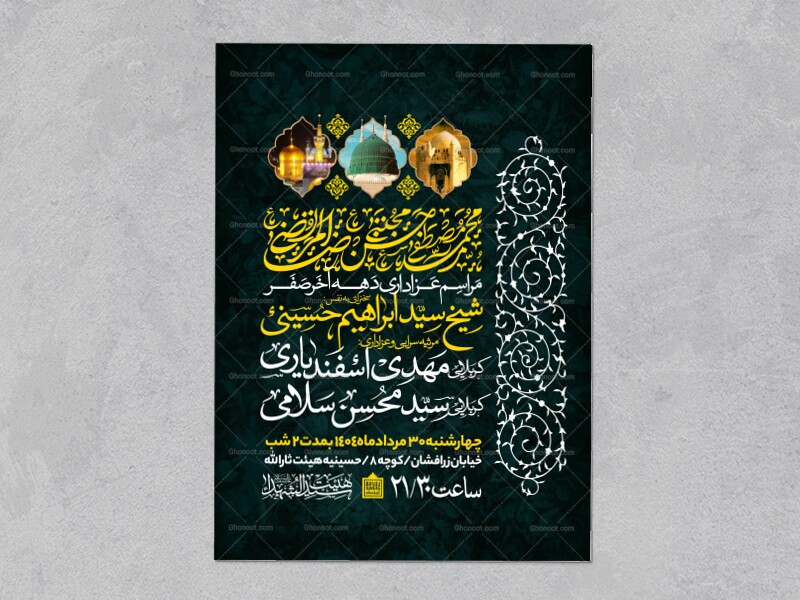 محمد مصطفی حسن مجتبی
علی بن موسی الرضا المرتضی
مراسم عزاداری دهه آخر صفر
سخنرانی به نفس:
شیخ سید ابراهیم حسینی
مرثیه سرایی و عزاداری:
کربلایی مهدی اسفندیاری
کربلایی سید محسن سلامی
چهارشنبه ۳۰ مرداد ماه ۱۴۰۴ بمدت ۲ شب
خیابان زرافشان / کوچه ۸ / حسینیه هیئت ثارالله
ساعت ۲۱/۳۰
هیئت سیدالشهدا
Ghonoot.com